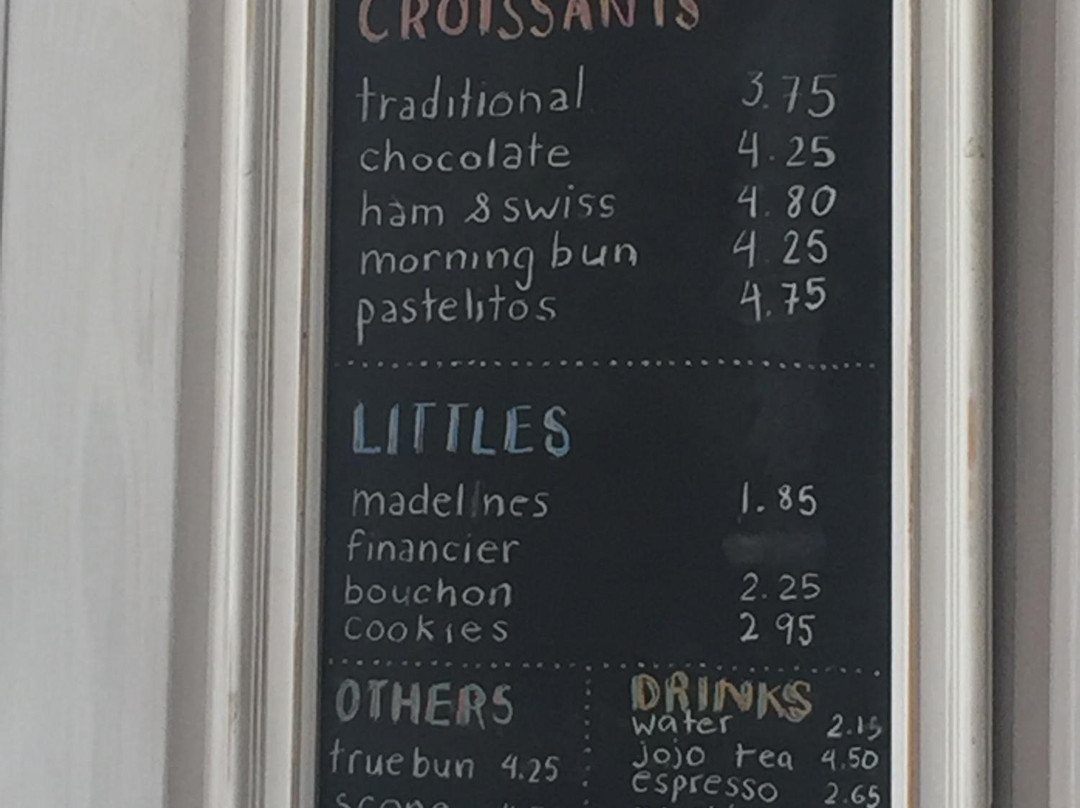 CROISSANTS
traditional 3.75
chocolate 4.25
ham & swiss 4.80
morning bun 4.25
pastelitos 4.75
LITTLES
madelines 1.85
financier
bouchon 2.25
cookies 2 95
OTHERS
true bun 4.25
DRINKS
water 2.15
jojo tea 4.50
espresso 2.65